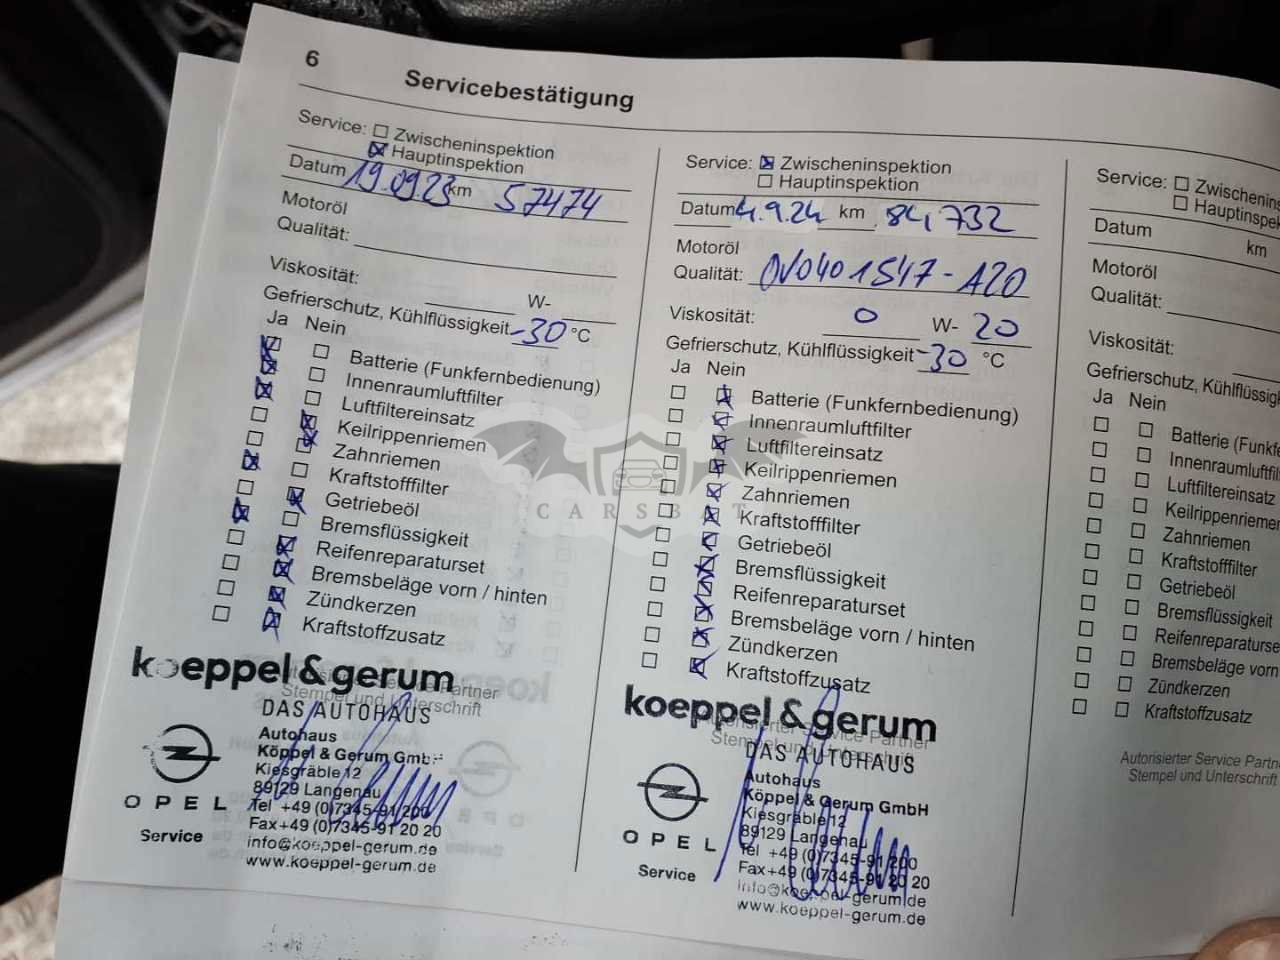 6
Servicebestätigung
Service: Zwischeninspektion
Hauptinspektion
Datum 19.09.23 km 57474
Motoröl
Qualität:
Viskosität: W-
Gefrierschutz, Kühlflüssigkeit -30 °C
Ja Nein
Batterie (Funkfernbedienung)
Innenraumluftfilter
Luftfiltereinsatz
Keilrippenriemen
Zahnriemen
Kraftstofffilter
Getriebeöl
Bremsflüssigkeit
Reifenreparaturset
Bremsbeläge vorn / hinten
Zündkerzen
Kraftstoffzusatz
koeppel & gerum
Service Partner
Stempel und Unterschrift
DAS AUTOHAUS
Autohaus
Köppel & Gerum GmbH
Kiesgräble 12
89129 Langenau
Tel +49 (0)7345-91 200
Fax+49 (0)7345-91 20 20
info@koeppel-gerum.de
www.koeppel-gerum.de
OPEL
Service
Service: Zwischeninspektion
Hauptinspektion
Datum 4.9.24 km 84,732
Motoröl
Qualität: OV0401547-A20
Viskosität: 0 W- 20
Gefrierschutz, Kühlflüssigkeit -30 °C
Ja Nein
Batterie (Funkfernbedienung)
Innenraumluftfilter
Luftfiltereinsatz
Keilrippenriemen
Zahnriemen
Kraftstofffilter
Getriebeöl
Bremsflüssigkeit
Reifenreparaturset
Bremsbeläge vorn / hinten
Zündkerzen
Kraftstoffzusatz
koeppel & gerum
Autorisierter Service Partner
Stempel und Unterschrift
DAS AUTOHAUS
Autohaus
Köppel & Gerum GmbH
Kiesgräble 12
89129 Langenau
Tel +49 (0)7345-91 200
Fax+49 (0)7345-91 20 20
info@koeppel-gerum.de
www.koeppel-gerum.de
OPEL
Service
Service: Zwischeninspe
Hauptinspek
Datum km
Motoröl
Qualität:
Viskosität:
Gefrierschutz, Kühlflüssigk
Ja Nein
Batterie (Funkf
Innenraumluftfil
Luftfiltereinsatz
Keilrippenrieme
Zahnriemen
Kraftstofffilter
Getriebeöl
Bremsflüssigkeit
Reifenreparaturse
Bremsbeläge vorn
Zündkerzen
Kraftstoffzusatz
Autorisierter Service Partn
Stempel und Unterschrift
CARSBAT